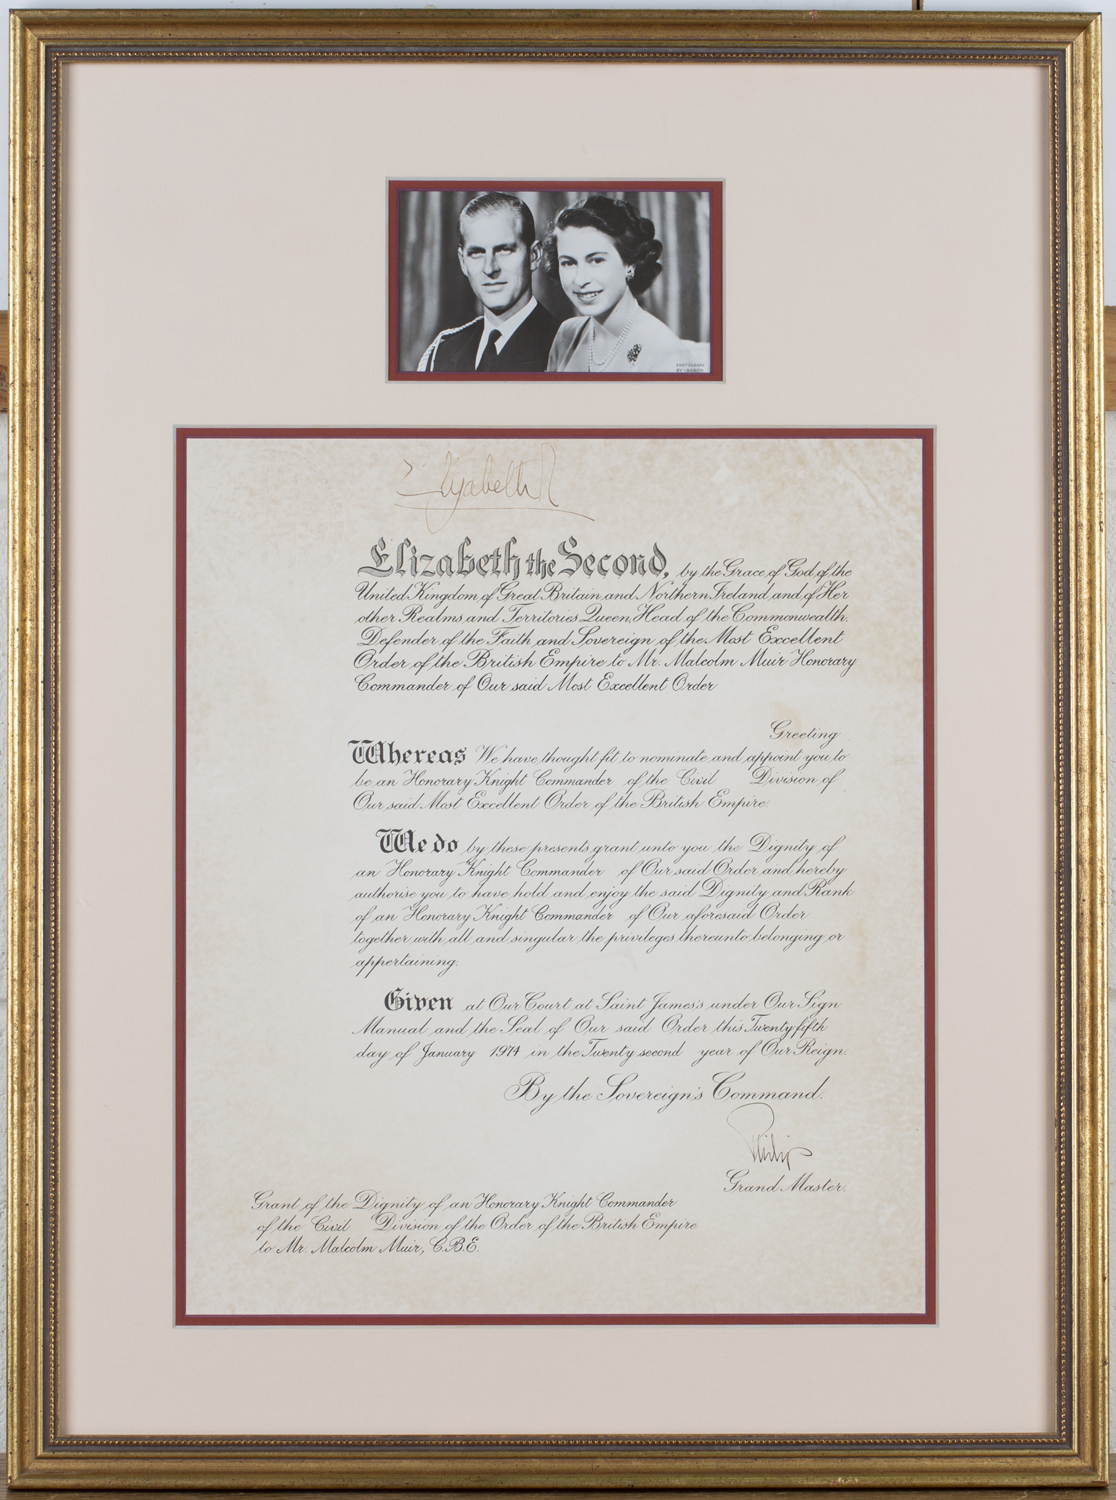 PHOTOGRAPH
BY BARON
Elizabeth R
Elizabeth the Second, by the Grace of God of the
United Kingdom of Great Britain and Northern Ireland and of Her
other Realms and Territories Queen, Head of the Commonwealth,
Defender of the Faith and Sovereign of the Most Excellent
Order of the British Empire to Mr. Malcolm Muir Honorary
Commander of Our said Most Excellent Order
Greeting
Whereas We have thought fit to nominate and appoint you to
be an Honorary Knight Commander of the Civil Division of
Our said Most Excellent Order of the British Empire
We do by these presents grant unto you the Dignity of
an Honorary Knight Commander of Our said Order and hereby
authorise you to have hold and enjoy the said Dignity and Rank
of an Honorary Knight Commander of Our aforesaid Order
together with all and singular the privileges thereunto belonging or
appertaining.
Given at Our Court at Saint James's under Our Sign
Manual and the Seal of Our said Order this Twenty fifth
day of January 1974 in the Twenty second year of Our Reign.
By the Sovereign's Command.
Philip
Grand Master.
Grant of the Dignity of an Honorary Knight Commander
of the Civil Division of the Order of the British Empire
to Mr. Malcolm Muir, C.B.E.